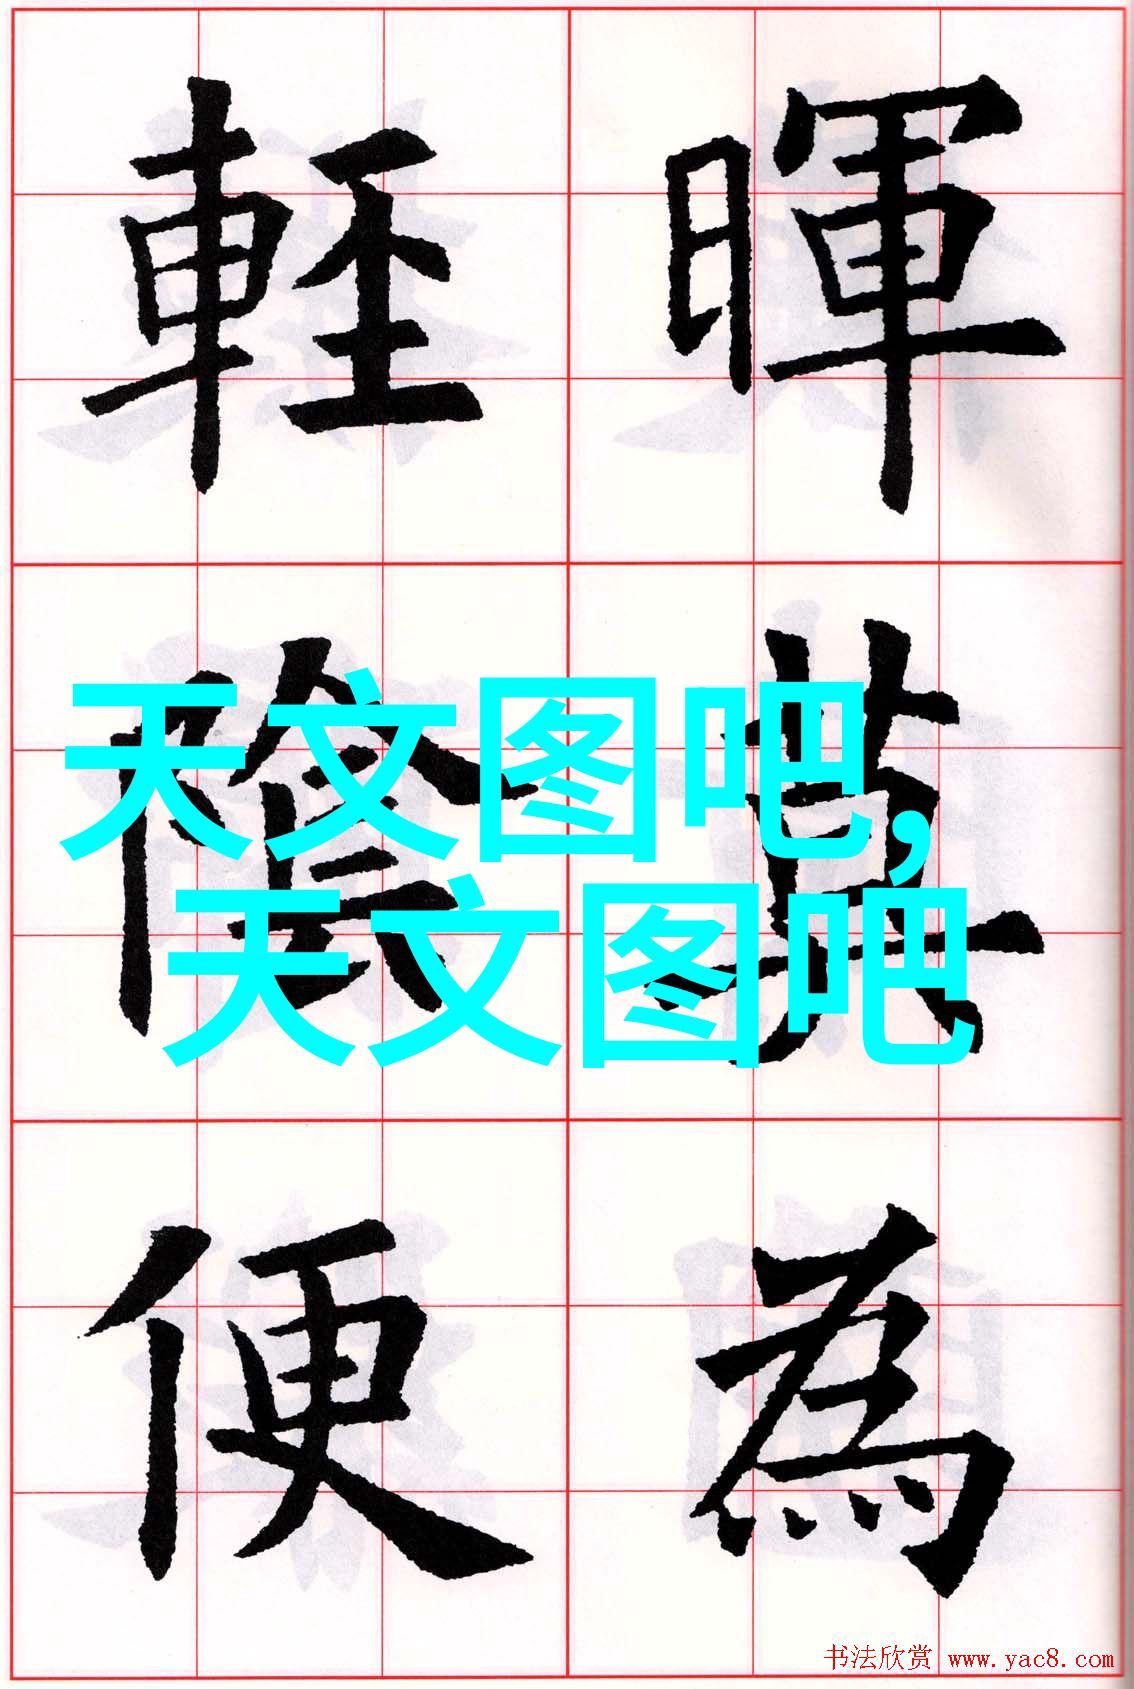 暉莫為
輕陰便
天文图吧,
天文图吧
书法欣赏 www.yac8.com